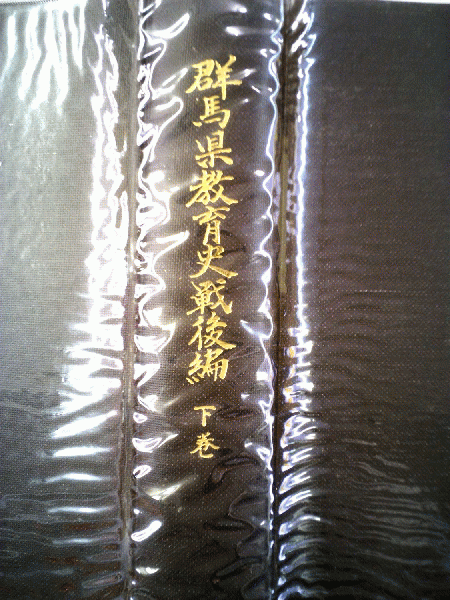 群馬県教育史戦後編 下巻